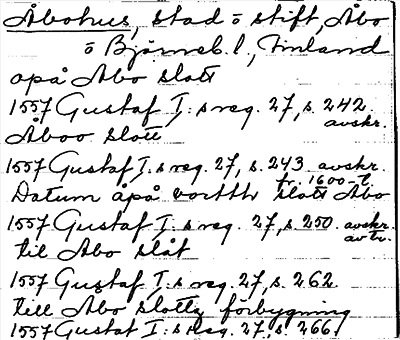 Åbohus, stad o stift, Åbo
o Björneb. l., Finland
apå Åbo slott
1557 Gustaf I:s reg. 27, s. 242.
avskr.
Åboo slott
1557 Gustaf I:s reg. 27, s. 243 avskr.
fr. 1600-t.
Datum åpå vortth slott Åbo
1557 Gustaf I:s reg. 27, s. 250. avskr.
av tr.
til Åbo slåt
1557 Gustaf I:s reg. 27, s. 262.
till Åbo slotts förbygning
1557 Gustaf I:s reg. 27, s. 266